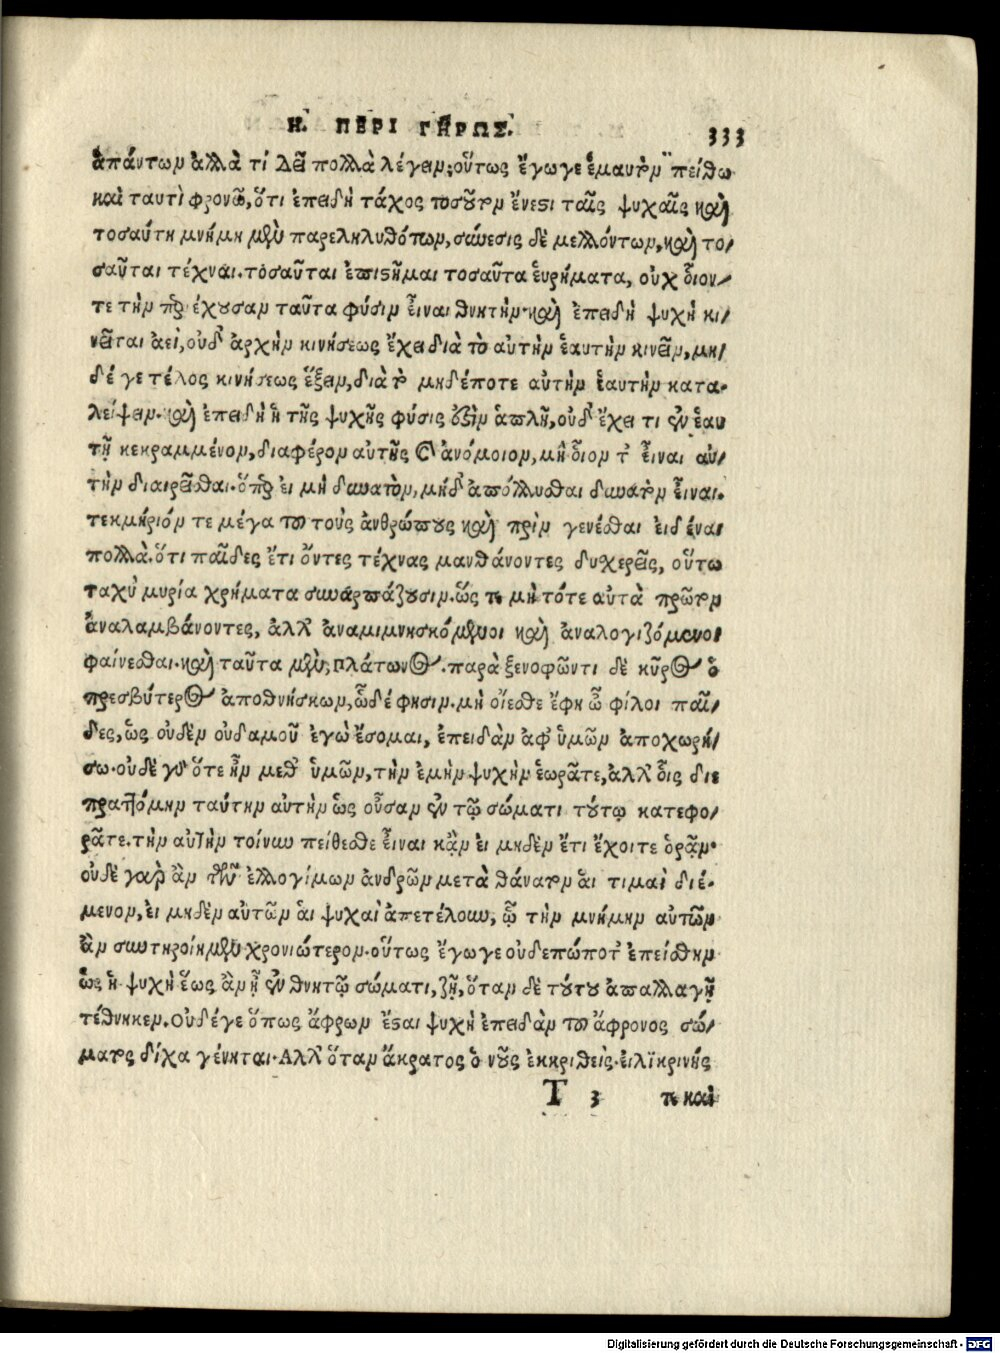 Η. ΠΕΡΙ ΓΗΡΩΣ. 333
ἁπάντων ἀλλὰ τί δεῖ πολλὰ λέγειν; οὕτως ἔγωγε ἐμαυτὸν πείθω
καὶ ταυτὶ φρονῶ, ὅτι ἐπειδὴ τάχος τοσοῦτον ἔνεστι ταῖς ψυχαῖς καὶ
τοσαύτη μνήμη μὲν παρεληλυθότων, σύνεσις δὲ μελλόντων, καὶ το/
σαῦται τέχναι. τοσαῦται ἐπιστῆμαι τοσαῦτα εὑρήματα, οὐχ οἷον/
τε τὴν περιέχουσαν ταῦτα φύσιν εἶναι θνητήν. καὶ ἐπειδὴ ψυχὴ κι/
νεῖται ἀεὶ, οὐδ' ἀρχὴν κινήσεως ἔχει διὰ τὸ αὐτὴν ἑαυτὴν κινεῖν, μη/
δέ γε τέλος κινήσεως ἕξειν, διὰ τὸ μηδέποτε αὐτὴν ἑαυτὴν κατα-
λείψειν. καὶ ἐπειδὴ ἡ τῆς ψυχῆς φύσις ἐστὶν ἁπλῆ, οὐδ' ἔχει τι ἐν ἑαυ
τῇ κεκραμμένον, διαφέρον αὐτῆς καὶ ἀνόμοιον, μὴ οἷον τ' εἶναι αὐ/
τὴν διαιρεῖσθαι. ὅπερ εἰ μὴ δυνατὸν, μήδ' ἀπόλλυσθαι δυνατὸν εἶναι.
τεκμήριόν τε μέγα τοῦ τοὺς ἀνθρώπους καὶ πρὶν γενέσθαι εἰδέναι
πολλὰ. ὅτι παῖδες ἔτι ὄντες τέχνας μανθάνοντες δυχερεῖς, οὕτω
ταχὺ μυρία χρήματα συναρπάζουσιν. ὥς τε μὴ τότε αὐτὰ πρῶτον
ἀναλαμβάνοντες, ἀλλ' ἀναμιμνησκόμενοι καὶ ἀναλογιζόμενοι
φαίνεσθαι. καὶ ταῦτα μὲν, πλάτωνος. παρὰ ξενοφῶντι δὲ κῦρος ὁ
πρεσβύτερος ἀποθνήσκων, ὧδέ φησιν. μὴ οἴεσθε ἔφη ὦ φίλοι παῖ/
δες, ὡς οὐδὲν οὐδαμοῦ ἐγὼ ἔσομαι, ἐπειδὰν ἀφ' ὑμῶν ἀποχωρή/
σω. οὐδὲ γὰρ ὅτε ἦν μεθ' ὑμῶν, τὴν ἐμὴν ψυχὴν ἑωρᾶτε, ἀλλ' οἷς διε
πραττόμην ταύτην αὐτὴν ὡς οὖσαν ἐν τῷ σώματι τούτῳ κατεφο/
ρᾶτε. τὴν αὐτὴν τοίνυν πείθεσθε εἶναι κᾂν εἰ μηδὲν ἔτι ἔχοιτε ὁρᾷν.
οὐδὲ γὰρ ἂν τῶν ἐλλογίμων ἀνδρῶν μετὰ θάνατον αἱ τιμαὶ διέ-
μενον, εἰ μηδὲν αὐτῶν αἱ ψυχαὶ ἀπετέλουν, ᾧ τὴν μνήμην αὐτῶν
ἂν συντηροίημεν χρονιώτερον. οὕτως ἔγωγε οὐδεπώποτ' ἐπείσθην
ὡς ἡ ψυχὴ ἕως ἂν ᾖ ἐν θνητῷ σώματι, ζῇ, ὅταν δὲ τούτου ἀπαλλαγῇ
τέθνηκεν. οὐδέγε ὅπως ἄφρων ἔσται ψυχὴ ἐπειδὰν τοῦ ἄφρονος σώ/
ματος δίχα γένηται. Αλλ' ὅταν ἄκρατος ὁ νοῦς ἐκκριθεὶς. εἰλϊκρινής
T 3 τε καὶ
Digitalisierung gefördert durch die Deutsche Forschungsgemeinschaft - DFG